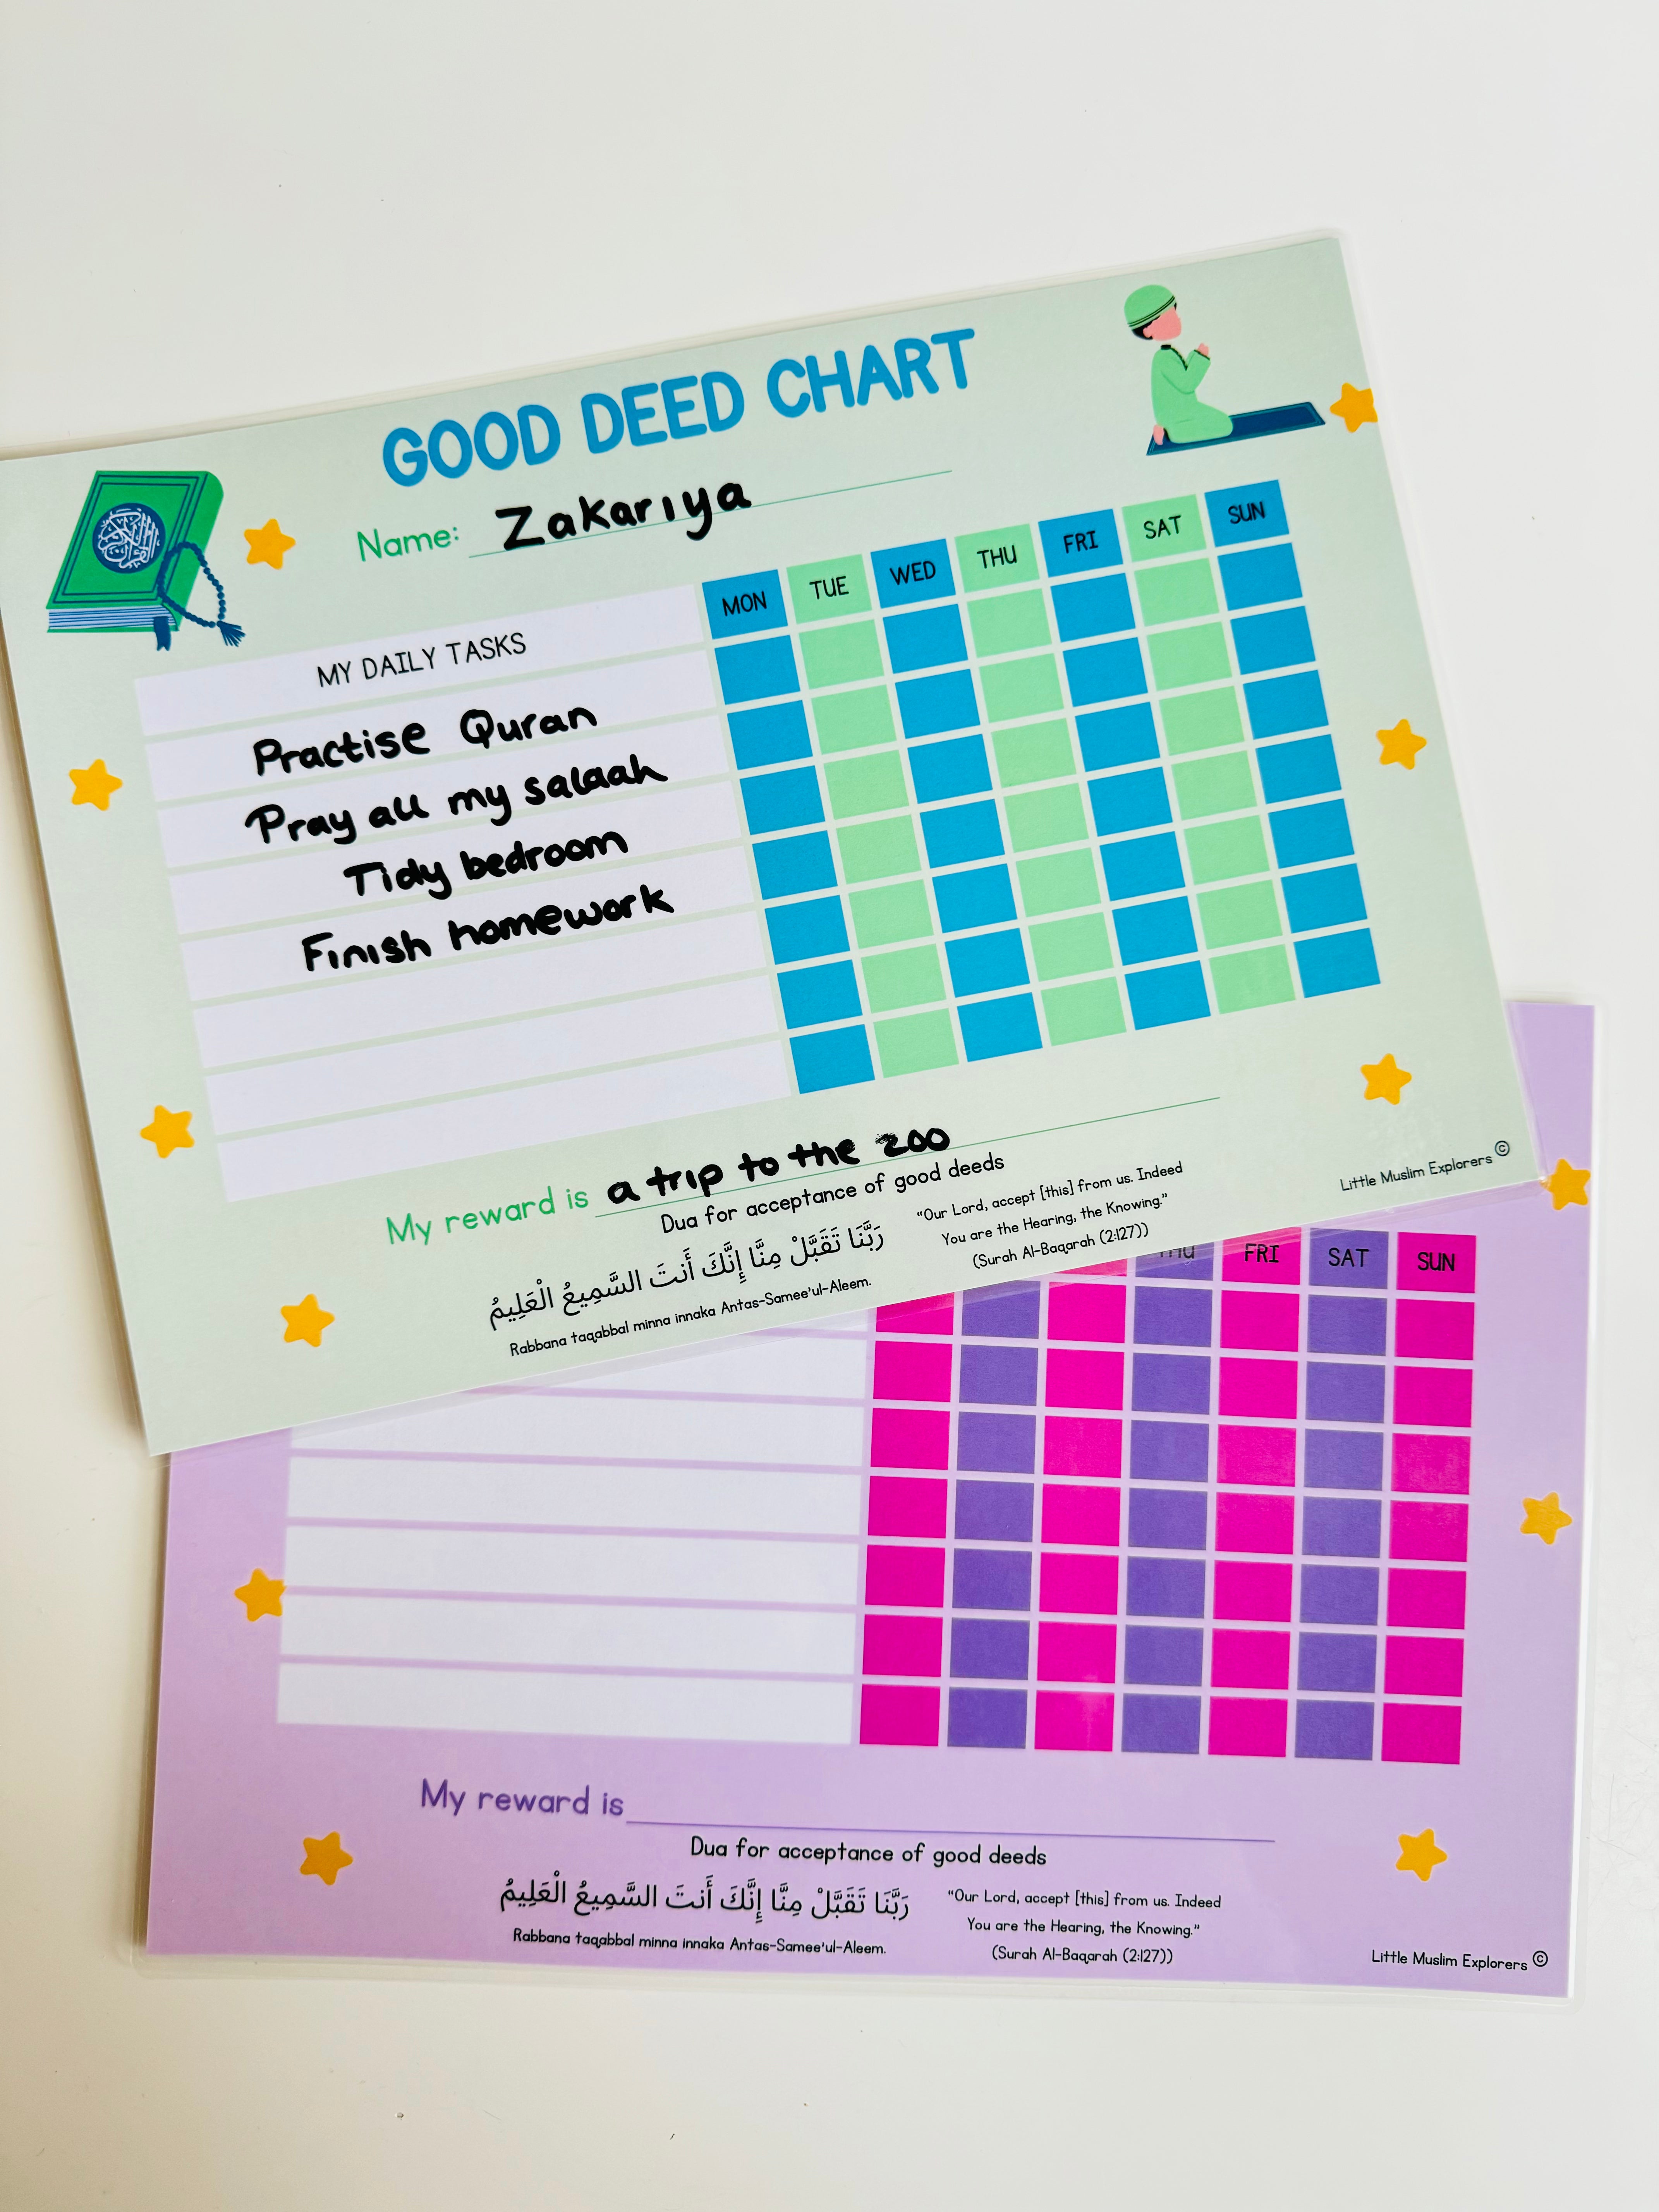 GOOD DEED CHART
Name: Zakariya
MY DAILY TASKS MON TUE WED THU FRI SAT SUN
Practise Quran
Pray all my salaah
Tidy bedroom
Finish homework
My reward is a trip to the zoo
Dua for acceptance of good deeds
رَبَّنَا تَقَبَّلْ مِنَّا إِنَّكَ أَنتَ السَّمِيعُ الْعَلِيمُ
Rabbana taqabbal minna innaka Antas-Samee'ul-Aleem.
"Our Lord, accept [this] from us. Indeed
You are the Hearing, the Knowing."
(Surah Al-Baqarah (2:127))
Little Muslim Explorers ©
THU FRI SAT SUN
My reward is
Dua for acceptance of good deeds
رَبَّنَا تَقَبَّلْ مِنَّا إِنَّكَ أَنتَ السَّمِيعُ الْعَلِيمُ
Rabbana taqabbal minna innaka Antas-Samee'ul-Aleem.
"Our Lord, accept [this] from us. Indeed
You are the Hearing, the Knowing."
(Surah Al-Baqarah (2:127))
Little Muslim Explorers ©